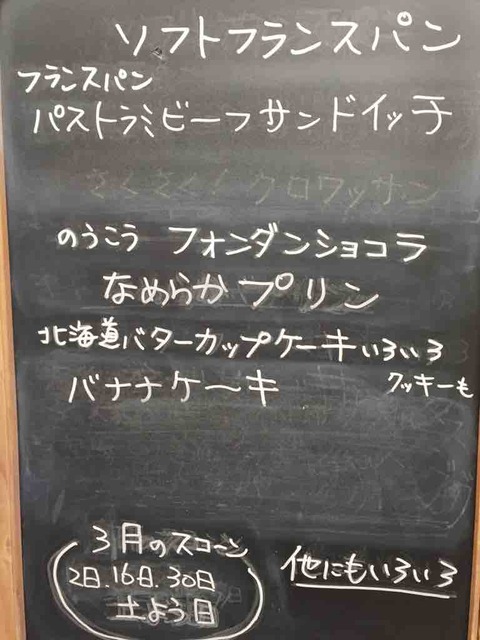 ソフトフランスパン
フランスパン
パストラミビーフサンドイッチ
さくさく！クロワッサン
のうこう フォンダンショコラ
なめらかプリン
北海道バターカップケーキいろいろ
バナナケーキ クッキーも
3月のスコーン
2日.16日.30日
土よう日
他にもいろいろ